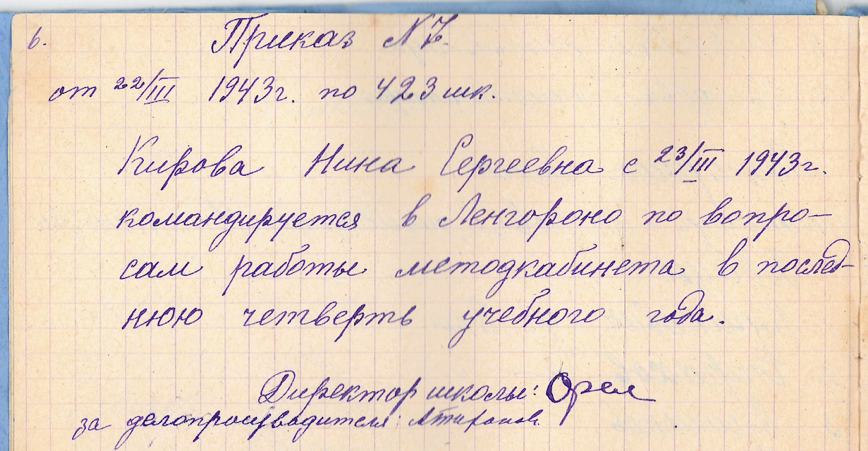 6.
Приказ № 7.
от 22/III 1943 г. по 423 шк.
Кирова Нина Сергеевна с 23/III 1943 г.
командируется в Ленгороно по вопро-
сам работы методкабинета в послед-
нюю четверть учебного года.
Директор школы: Орел
за делопроизводителя: